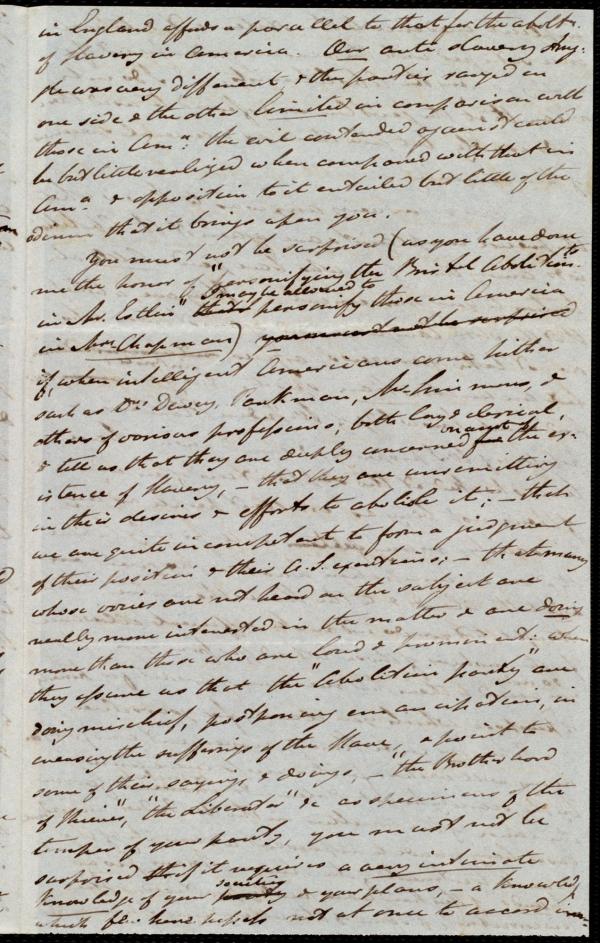 in England affords a parallel to that for the abolt.
of Slavery in America. Our anti slavery strug-
gle was very different & the parties ranged on
one side & the other limited in comparison with
those in Ama. the evil contended against could
be but little realized when compared with that in
Ama. & opposition to it entailed but little of the
odium that it brings upon you.
You must not be surprised (as you have done
me the honor of "personifying the Bristol Abolitionists
in Mr. Estlin" I may be allowed to personify those in America
in Mrs Chapman) you must not be surprised
if, when intelligent Americans come hither
such as Drs Dewey, Parkman, &
others of various professions, both lay & clerical,
& tell us that they are deeply concerned on acct of the ex-
istence of slavery, – that they are unremitting
in their desires & efforts to abolish it; – that
we are quite incompetent to form a judgment
of their position & their A.S. exertions; – that many
whose voices are not heard on the subject are
really more interested in the matter & are doing
more than those who are loud & prominent: when
they assure us that the "Abolition party" are
doing mischief, postponing emancipation, in
creasing the sufferings of the slave, & point to
some of their sayings & doings, – "the Brotherhood
of thieves", "the Liberator" &c as specimens of the
temper of your party, you must not be
surprised that it requires a very intimate
knowledge of your society & your plans, – a knowledge
which few here possess not at once to accord